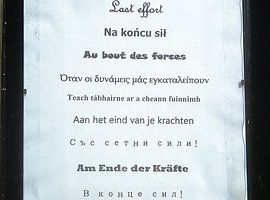 Last effort
Na końcu sił
Au bout des forces
Όταν οι δυνάμεις μάς εγκαταλείπουν
Teach tábhairne ar a cheann fuinnimh
Aan het eind van je krachten
Със сетни сили!
Am Ende der Kräfte
В конце сил!